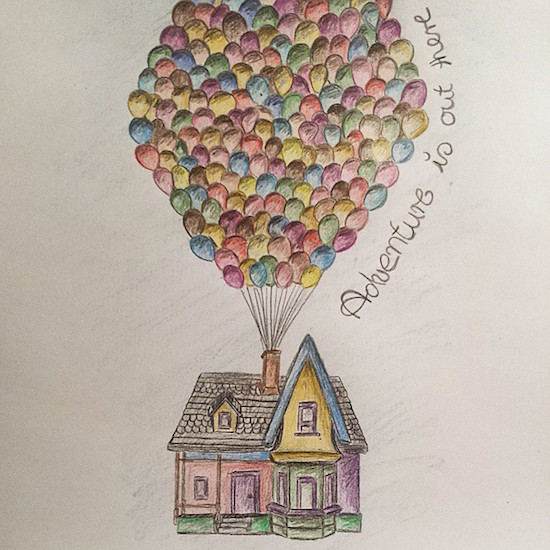 Adventure is out there